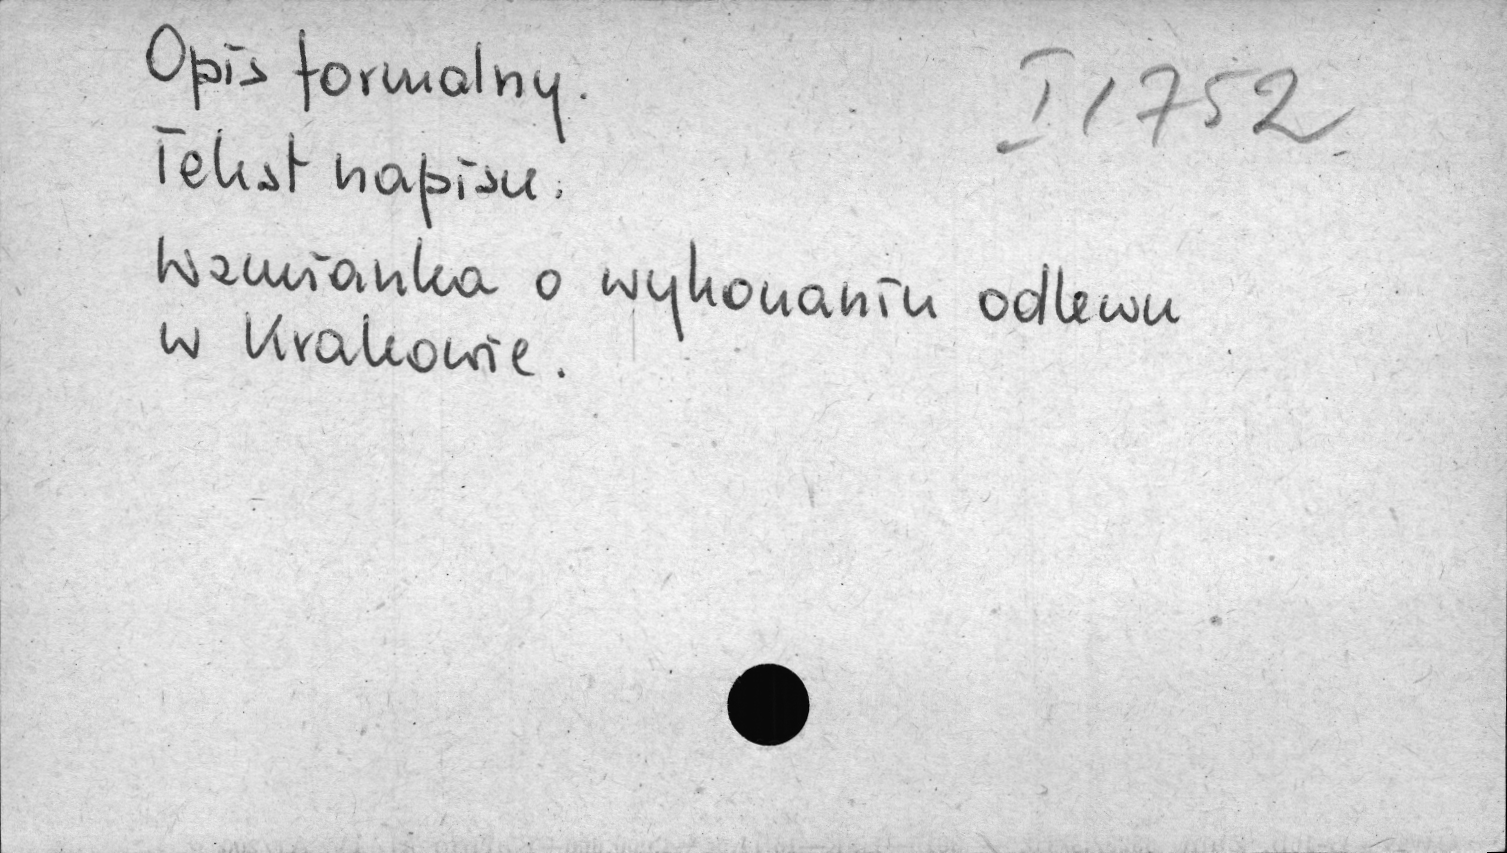 Opis formalny.
I 1752
Tekst napisu.
Wzmianka o wykonaniu odlewu
w Krakowie.